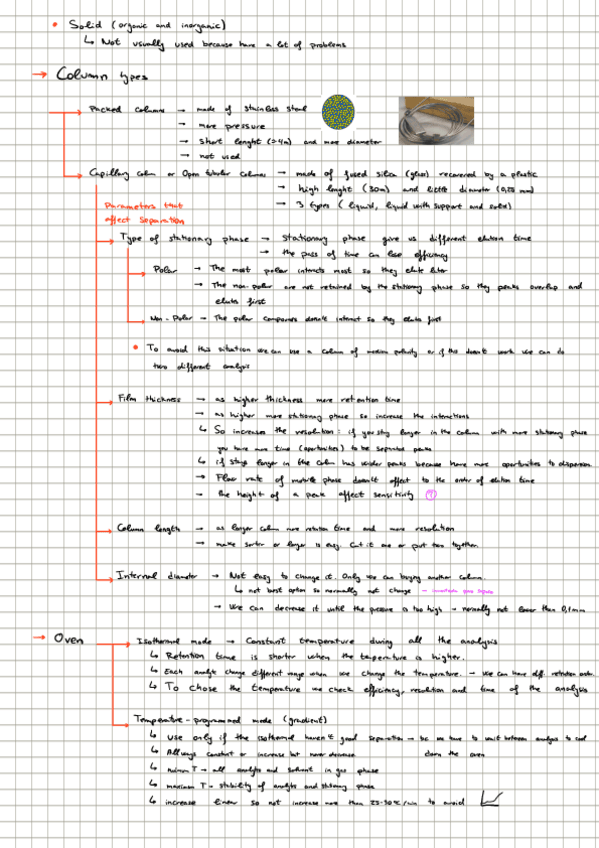 • Solid (organic and inorganic)
↳ Not usually used because have a lot of problems
→ Column types
Packed columns → made of stainless steel
→ more pressure
→ short lenght (>4m) and more diameter
→ not used
Capillary colum or Open tubular columns → made of fused silica (glass) recovered by a plastic
→ high lenght (30m) and little diameter (0,25 mm)
→ 3 types (liquid, liquid with support and solid)
Parameters that
affect separation
Type of stationary phase → Stationary phase give us different elution time
→ the pass of time can lose efficiency
Polar → The most polar interacts most so they elute later
→ The non-polar are not retained by the stationary phase so they peaks overlap and
elute first
Non-Polar → The polar compounds doesn't interact so they elute first
• To avoid this situation we can use a column of medium polarity or if this doesn't work we can do
two different analysis
Film thickness → as higher thickness more retention time
→ as higher more stationary phase so increase the interactions
↳ So increases the resolution: if you stay longer in the column with more stationary phase
you have more time (oportunities) to be separate peaks
↳ if stays longer in the colum has wider peaks because have more oportunities to dispersion
→ Flow rate of mobile phase doesn't affect to the order of elution time
→ the height of a peak affect sensitivity
Column length → as larger colum more retention time and more resolution
→ make sorter or larger is easy. Cut it one or put two together.
Internal diameter → Not easy to change it. Only we can buying another colum.
↳ not best option so normally not change
→ We can decrease it until the pressure is too high → normally not lower than 0,1mm
→ Oven
Isothermal mode → Constant temperature during all the analysis
↳ Retention time is shorter when the temperature is higher.
↳ Each analyte change different range when we change the temperature. → We can have diff. retention order.
↳ To chose the temperature we check efficiency, resolution and time of the analysis
Temperature-programmed mode (gradient)
↳ Use only if the isothermal haven't good separation → bc we have to wait between analysis to cool
↳ Allways constant or increase but never decrease down the oven
↳ minimum T → all analytes and solvent in gas phase
↳ maximum T → stability of analyte and stationary phase
↳ increase linear so not increase more than 25-30°C/min to avoid